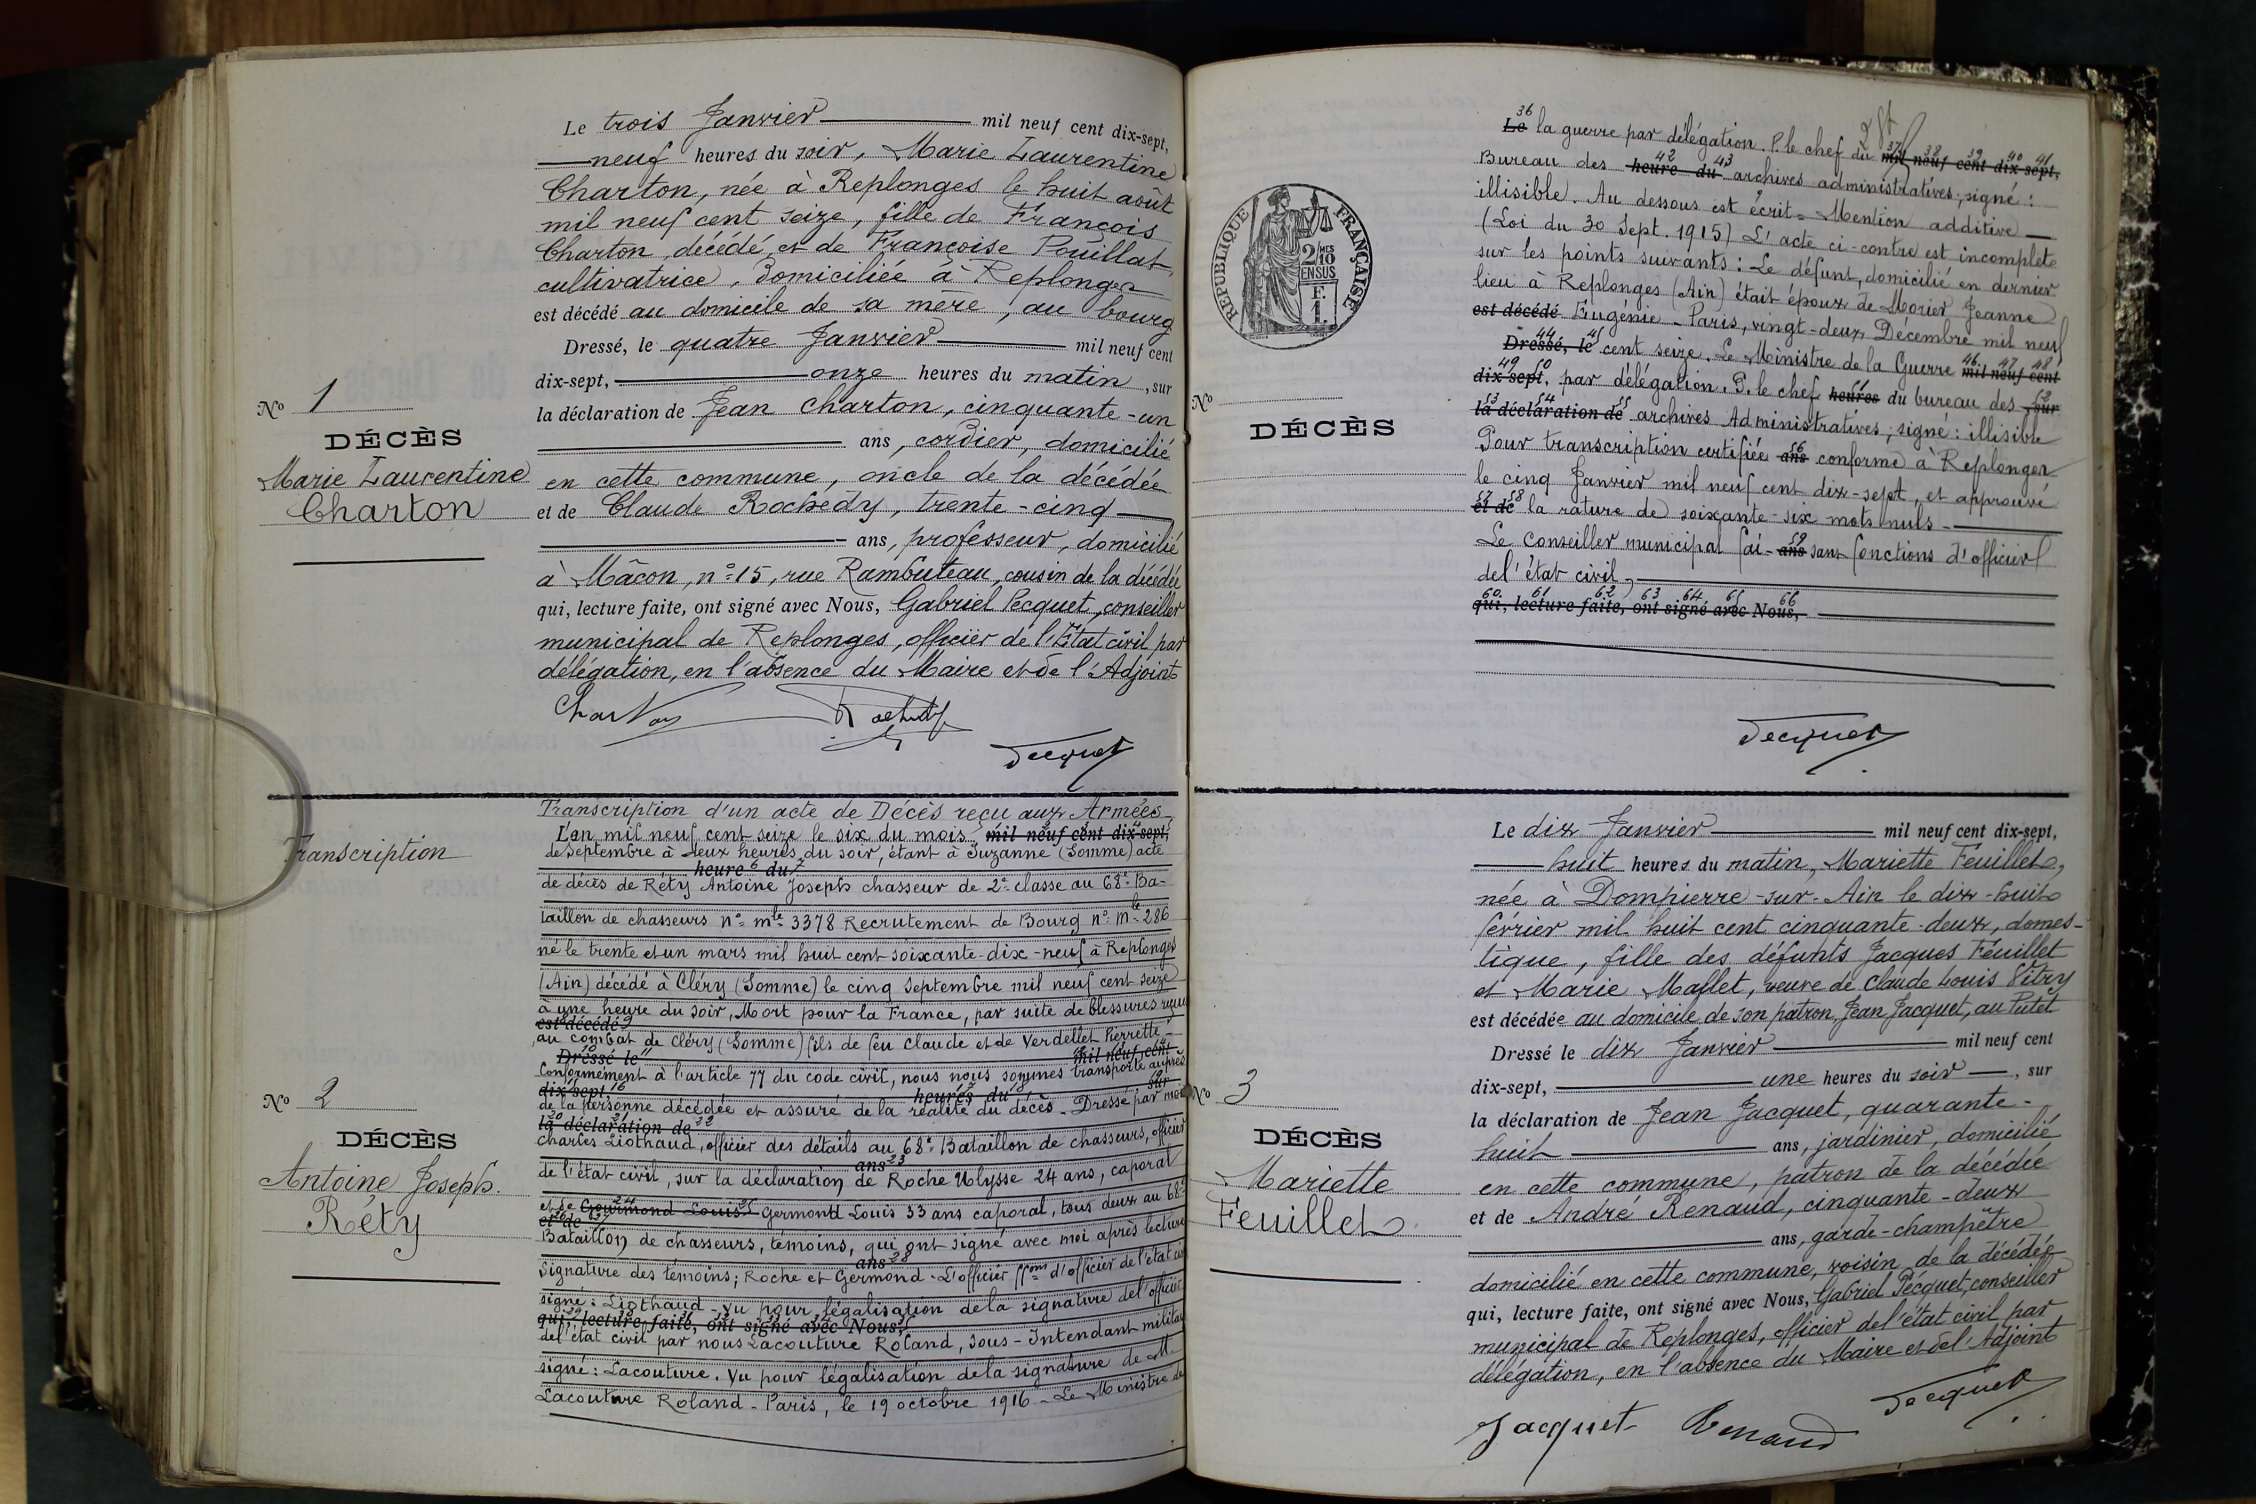 Le trois Janvier mil neuf cent dix-sept,
neuf heures du soir, Marie Laurentine
Charton, née à Replonges le huit août
mil neuf cent seize, fille de François
Charton, décédé, et de Françoise Pouillat,
cultivatrice, domiciliée à Replonges
est décédé au domicile de sa mère, au bourg
Dressé, le quatre Janvier mil neuf cent
dix-sept, onze heures du matin, sur
la déclaration de Jean Charton, cinquante-un
ans, cordier, domicilié
en cette commune, oncle de la décédée
et de Claude Rochedy, trente-cinq
ans, professeur, domicilié
à Mâcon, n° 15, rue Rambuteau, cousin de la décédée
qui, lecture faite, ont signé avec Nous, Gabriel Pecquet, conseiller
municipal de Replonges, officier de l'Etat civil par
délégation, en l'absence du Maire et de l'Adjoint
Charton Rochedy
Pecquet
N° 1
DÉCÈS
Marie Laurentine
Charton
Transcription
N° 2
DÉCÈS
Antoine Joseph
Réty
Transcription d'un acte de Décès reçu aux Armées
L'an mil neuf cent seize le six du mois mil neuf cent dix-sept,
de Septembre à deux heures du soir, étant à Suzanne (Somme) acte
heure 6 du 7
de décès de Réty Antoine Joseph chasseur de 2e classe au 68e Ba-
taillon de chasseurs n° mle 3378 Recrutement de Bourg n° mle 286
né le trente et un mars mil huit cent soixante-dix-neuf à Replonges
(Ain) décédé à Cléry (Somme) le cinq Septembre mil neuf cent seize
à une heure du soir, Mort pour la France, par suite de blessures reçues
est décédé
au combat de Cléry (Somme) fils de feu Claude et de Verdellet Pierrette
Dressé le mil neuf cent
Conformément à l'article 77 du code civil, nous nous sommes transporté auprès
dix-sept, 16 heures du sur
de la personne décédée et assuré de la réalité du décès. Dressé par moi
la déclaration de 22
Charles Liothaud, officier des détails au 68e Bataillon de chasseurs, officier
ans 23
de l'état civil, sur la déclaration de Roche Ulysse 24 ans, caporal
et de Gourmond Louis Germond Louis 33 ans caporal, tous deux au 68e
et de
Bataillon de chasseurs, témoins, qui ont signé avec moi après lecture
ans 28
Signature des témoins; Roche et Germond. L'officier ffons d'officier de l'état civ
signé: Liothaud - Vu pour légalisation de la signature de l'officier
qui, lecture faite, ont signé avec Nous,
de l'état civil par nous Lacouture Roland, Sous-Intendant militai
signé: Lacouture. Vu pour légalisation de la signature de M.
Lacouture Roland - Paris, le 19 octobre 1916 - Le Ministre de
36 37 38 39 40 41
Le la guerre par délégation. P. le chef du mil neuf cent dix-sept,
42 43
Bureau des heure du archives administratives, signé:
illisible. Au dessous est écrit = Mention additive
(Loi du 30 Sept. 1915) L'acte ci-contre est incomplète
sur les points suivants: Le défunt, domicilié en dernier
lieu à Replonges (Ain) était époux de Morier Jeanne
est décédé Eugénie - Paris, vingt-deux Décembre mil neuf
44 45
Dressé, le cent seize. Le Ministre de la Guerre mil neuf cent
49 50 46 47 48
dix sept, par délégation. P. le chef heures du bureau des sur
53 54 55 51 52
la déclaration de archives Administratives, signé: illisible
Pour transcription certifiée ans conforme à Replonges
le cinq Janvier mil neuf cent dix-sept, et approuvé
57 58
et de la rature de soixante-six mots nuls
Le Conseiller municipal fai-ans sant fonctions d'officier
de l'état civil,
60 61 62 63 64 65 66
qui, lecture faite, ont signé avec Nous,
Pecquet
RÉPUBLIQUE FRANÇAISE
2/10
MES
EN SUS
F.
1.
N°
DÉCÈS
N° 3
DÉCÈS
Mariette
Feuillet
Le dix Janvier mil neuf cent dix-sept,
huit heures du matin, Mariette Feuillet,
née à Dompierre-sur-Ain le dix-huit
février mil huit cent cinquante-deux, domes-
tique, fille des défunts Jacques Feuillet
et Marie Maflet, veuve de Claude Louis Vitry
est décédée au domicile de son patron, Jean Jacquet, au Putet
Dressé le dix Janvier mil neuf cent
dix-sept, une heures du soir, sur
la déclaration de Jean Jacquet, quarante-
huit ans, jardinier, domicilié
en cette commune, patron de la décédée
et de André Renaud, cinquante-deux
ans, garde-champêtre
domicilié en cette commune, voisin de la décédée
qui, lecture faite, ont signé avec Nous, Gabriel Pecquet, conseiller
municipal de Replonges, officier de l'état civil par
délégation, en l'absence du Maire et de l'Adjoint
Jacquet Renaud Pecquet